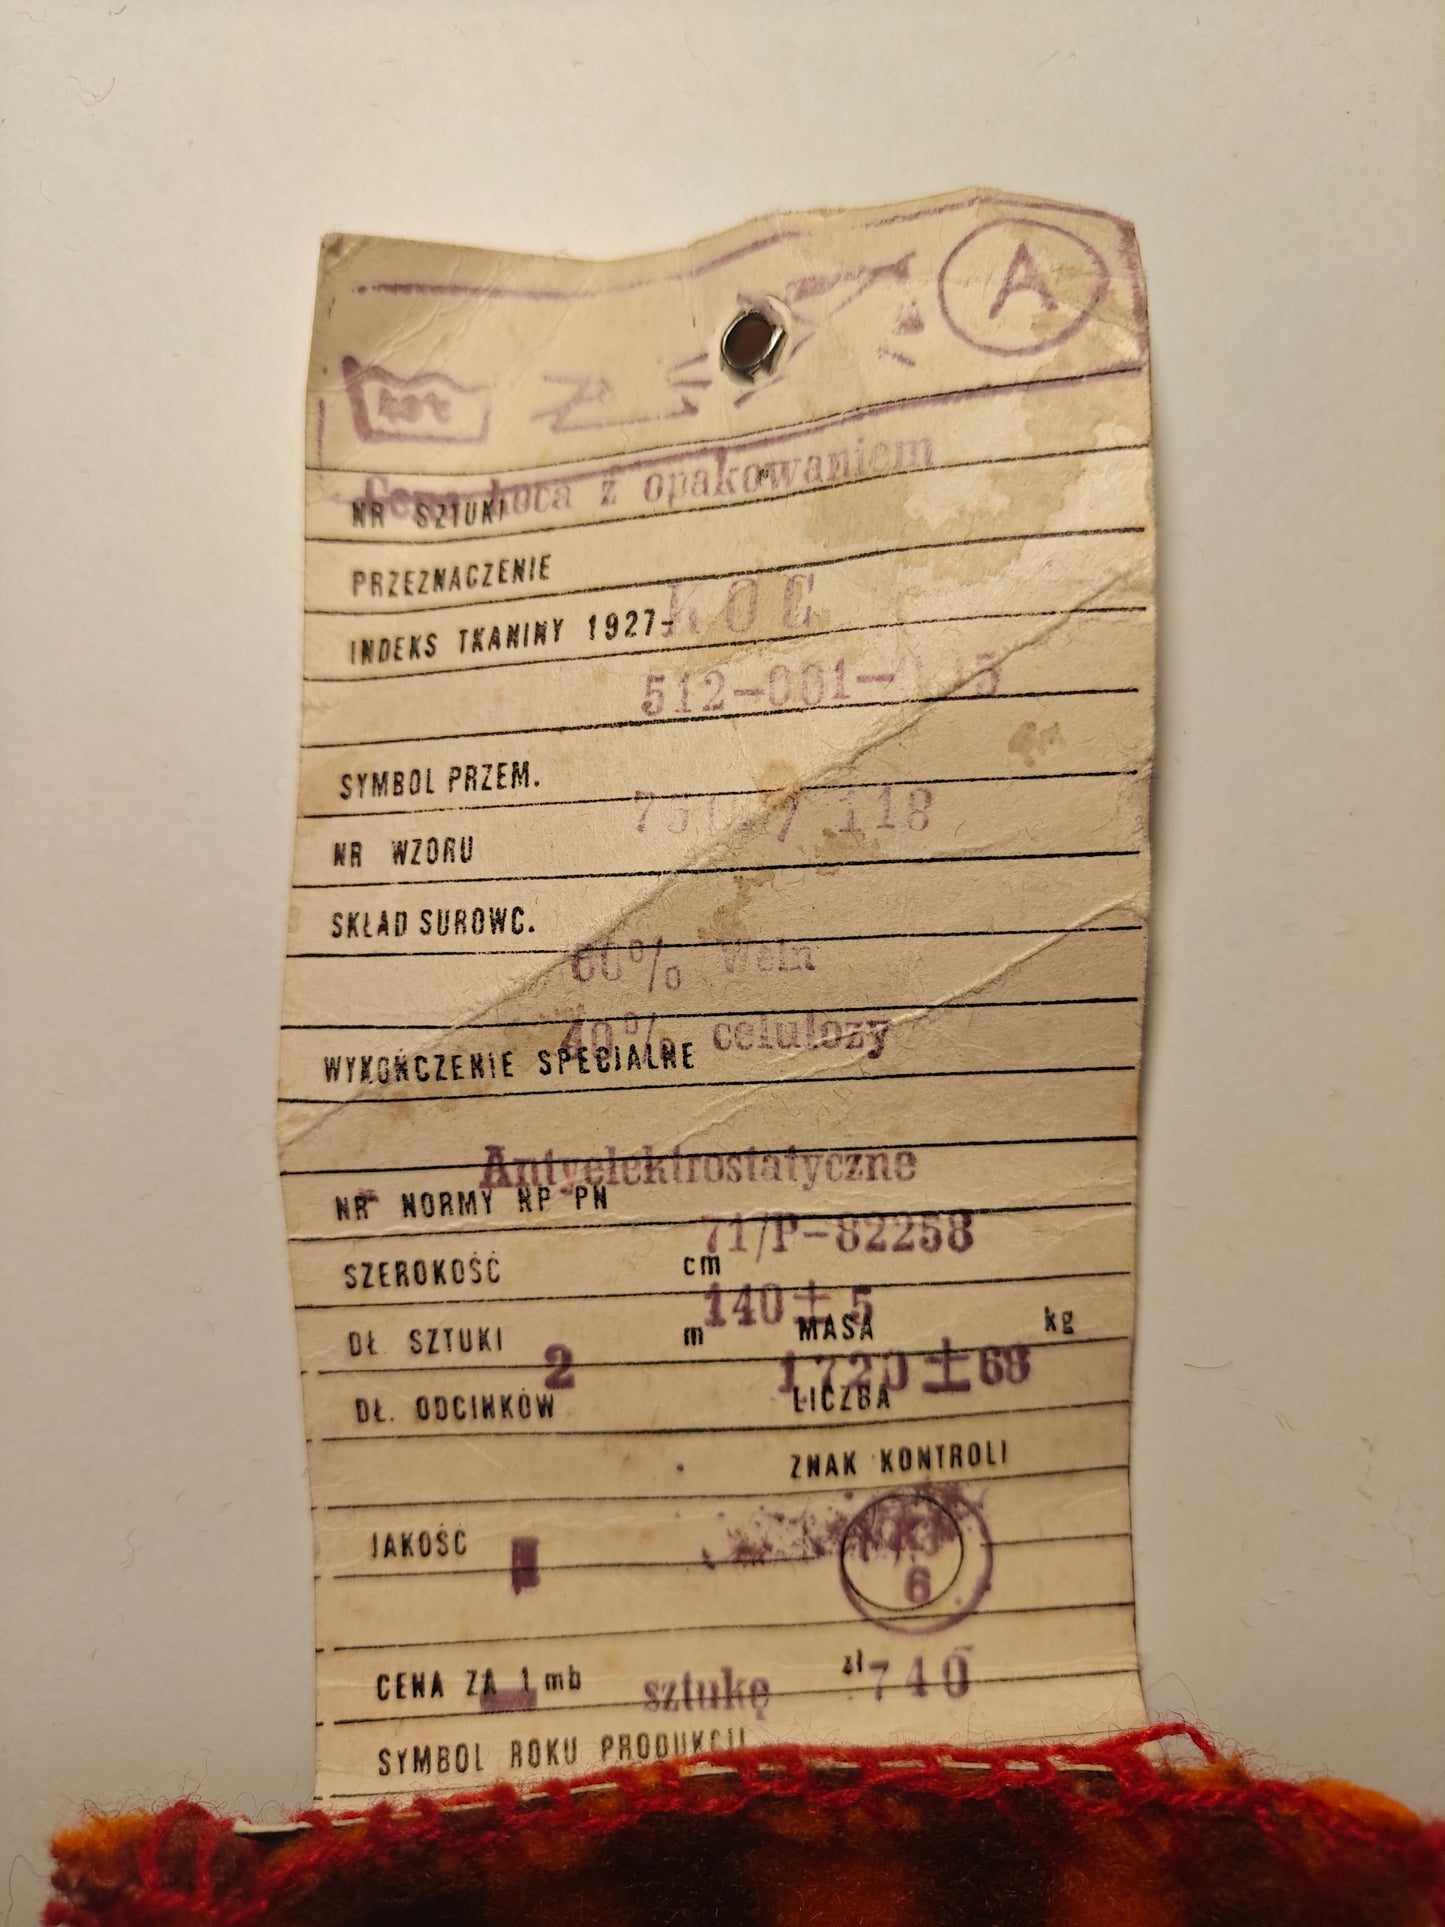 A
Cena koca z opakowaniem
NR SZTUKI
PRZEZNACZENIE
KOC
INDEKS TKANINY 1927-
512-001-
SYMBOL PRZEM.
118
NR WZORU
SKŁAD SUROWC.
60% Wełn
40% celulozy
WYKOŃCZENIE SPECJALNE
Antyelektrostatyczne
NR NORMY NP PN
71/P-82258
SZEROKOŚĆ cm
140±5
DŁ. SZTUKI 2 m MASA kg
1720±68
DŁ. ODCINKÓW LICZBA
ZNAK KONTROLI
JAKOŚĆ
6
CENA ZA 1 mb sztukę zł 740
SYMBOL ROKU PRODUKCJI